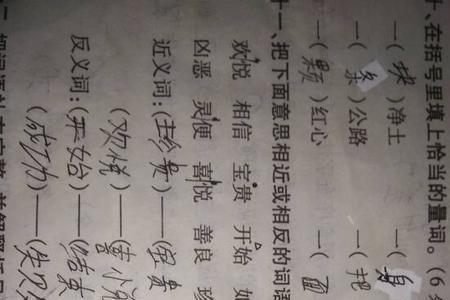 十、在括号里填上恰当的量词。(6
一(块)净土 一(身
一(条)公路 一(把
一(颗)红心 一(面
十一、把下面意思相近或相反的词语
欢悦 相信 宝贵 开始 如
凶恶 灵便 喜悦 善良 珍
近义词:(珍贵)——(宝贵
(欢悦)——(喜
反义词:(开始)——(结束
(成功)——(失